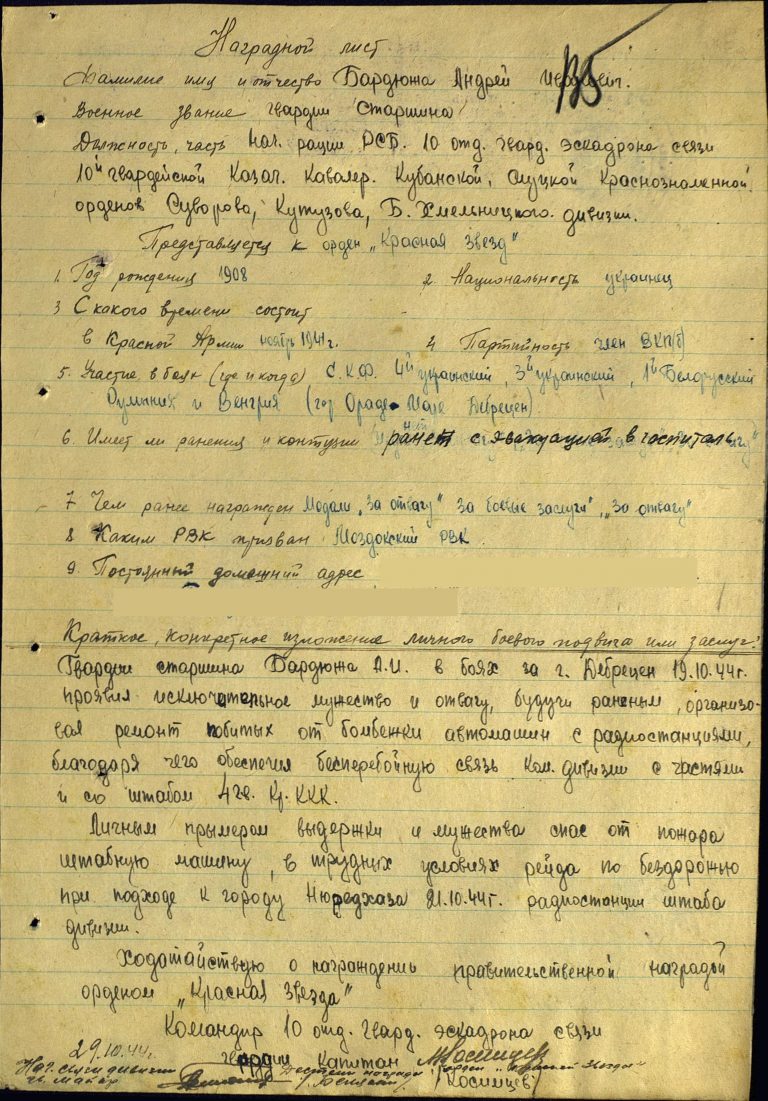 Наградной лист
Фамилие имя и отчество Бардюжа Андрей Иванович.
Военное звание гвардии старшина
Должность, часть Нач. рации РСБ. 10 отд. гвард. эскадрона связи
10й гвардейской Казач. Кавалер. Кубанской, Слуцкой Краснознаменной.
орденов Суворова, Кутузова, Б. Хмельницкого. дивизии.
Представляется к орден „Красная Звезд"
1. Год рождения 1908
2 Национальность украинец
3 С какого времени состоит
в Красной Армии ноябрь 1941г.
4 Партийность член ВКП(б)
5. Участие в боях (где и когда) С.К.Ф. 4й украинский, 3й украинский, 1й Белорусский
Румыния и Венгрия (гор Ораде Маре Дебрецен)
6. Имеет ли ранения и контузии ранен с эвакуацией в госпиталь
7 Чем ранее награжден Медали „За отвагу" за боевые заслуги", „За отвагу"
8 Каким РВК призван Моздокский РВК
9. Постоянный домашний адрес
Краткое, конкретное изложение личного боевого подвига или заслуг:
Гвардии старшина Бардюжа А.И. в боях за г. Дебрецен 19.10.44г.
проявил исключительное мужество и отвагу, будучи раненым, организо-
вал ремонт побитых от бомбежки автомашин с радиостанциями,
благодаря чего обеспечил бесперебойную связь Ком. дивизии с частями
и со штабом 4 гв. Кр. ККК.
Личным прымером выдержки и мужества спас от пожара
штабную машину, в трудных условиях рейда по бездорожью
при подходе к городу Нюредхаза 21.10.44г. радиостанции штаба
дивизии.
Ходотайствую о награждении правительственной наградой
орденом „Красная Звезда"
Командир 10 отд. гвард. эскадрона связи
29.10.44г.
гвардии капитан
/Косимцев/
Нач. связи дивизии
гв. майор
Достоин награды орден „Красной Звезды"